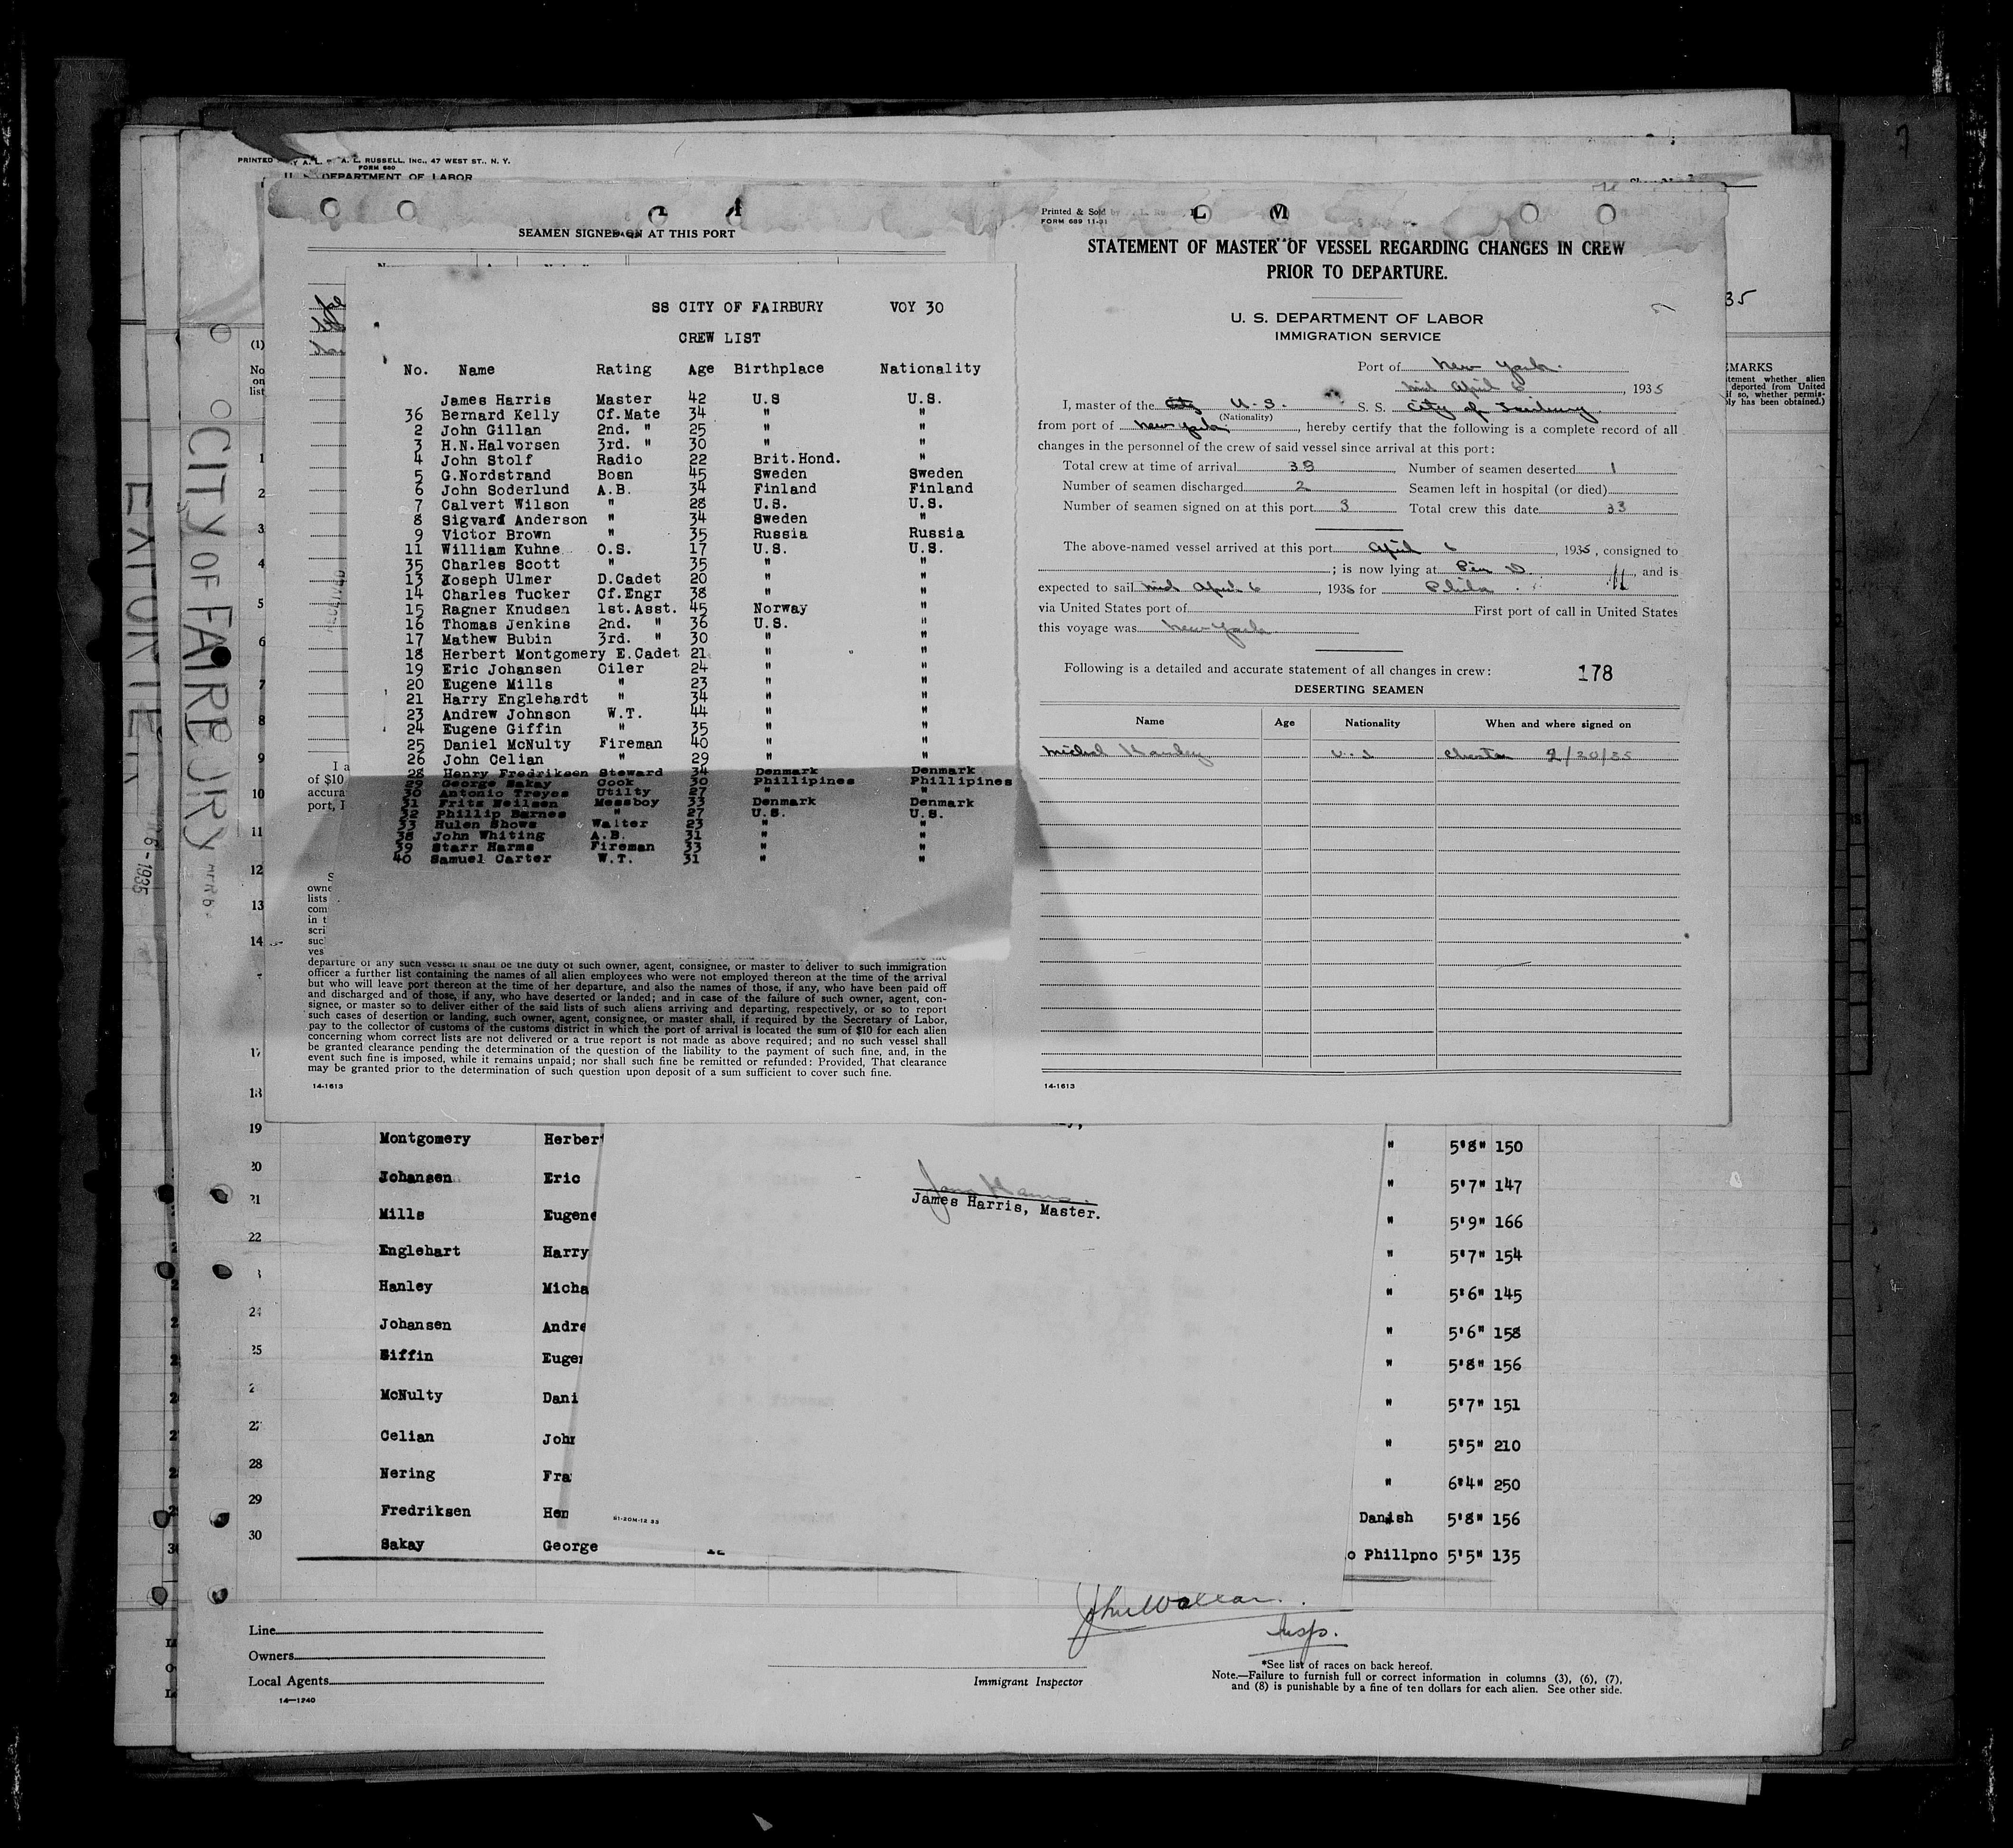 PRINTED
A. L. RUSSELL, INC., 47 WEST ST., N. Y.
FORM 680
U. S. DEPARTMENT OF LABOR
SEAMEN SIGNED ON AT THIS PORT
SS CITY OF FAIRBURY VOY 30
CREW LIST
No. Name Rating Age Birthplace Nationality
James Harris Master 42 U.S U.S.
36 Bernard Kelly Cf.Mate 34 " "
2 John Gillan 2nd. " 25 " "
3 H.N.Halvorsen 3rd. " 30 " "
4 John Stolf Radio 22 Brit.Hond. "
5 G.Nordstrand Bosn 45 Sweden Sweden
6 John Soderlund A.B. 34 Finland Finland
7 Calvert Wilson " 28 U.S. U.S.
8 Sigvard Anderson " 34 Sweden "
9 Victor Brown " 35 Russia Russia
11 William Kuhne O.S. 17 U.S. U.S.
35 Charles Scott " 35 " "
13 Joseph Ulmer D.Cadet 20 " "
14 Charles Tucker Cf.Engr 38 " "
15 Ragner Knudsen 1st.Asst. 45 Norway "
16 Thomas Jenkins 2nd. " 36 U.S. "
17 Mathew Bubin 3rd. " 30 " "
18 Herbert Montgomery E.Cadet 21 " "
19 Eric Johansen Oiler 24 " "
20 Eugene Mills " 23 " "
21 Harry Englehardt " 34 " "
23 Andrew Johnson W.T. 44 " "
24 Eugene Giffin " 35 " "
25 Daniel McNulty Fireman 40 " "
26 John Celian " 29 " "
28 Henry Fredriksen Steward 34 Denmark Denmark
29 George Sakay Cook 30 Phillipines Phillipines
30 Antonio Treyes Utilty 27 " "
31 Frits Neilsen Messboy 33 Denmark Denmark
32 Phillip Barnes " 27 U.S. U.S.
33 Hulen Shows Waiter 23 " "
38 John Whiting A.B. 31 " "
39 Starr Harms Fireman 33 " "
40 Samuel Carter W.T. 31 " "
departure of any such vessel it shall be the duty of such owner, agent, consignee, or master to deliver to such immigration
officer a further list containing the names of all alien employees who were not employed thereon at the time of the arrival
but who will leave port thereon at the time of her departure, and also the names of those, if any, who have been paid off
and discharged and of those, if any, who have deserted or landed; and in case of the failure of such owner, agent, con-
signee, or master so to deliver either of the said lists of such aliens arriving and departing, respectively, or so to report
such cases of desertion or landing, such owner, agent, consignee, or master shall, if required by the Secretary of Labor,
pay to the collector of customs of the customs district in which the port of arrival is located the sum of $10 for each alien
concerning whom correct lists are not delivered or a true report is not made as above required; and no such vessel shall
be granted clearance pending the determination of the question of the liability to the payment of such fine, and, in the
event such fine is imposed, while it remains unpaid; nor shall such fine be remitted or refunded: Provided, That clearance
may be granted prior to the determination of such question upon deposit of a sum sufficient to cover such fine.
14-1613
Printed & Sold by
FORM 689 11-31
STATEMENT OF MASTER OF VESSEL REGARDING CHANGES IN CREW
PRIOR TO DEPARTURE.
U. S. DEPARTMENT OF LABOR
IMMIGRATION SERVICE
Port of New York.
mid April 6, 1935
I, master of the U.S. S. S. City of Fairbury
(Nationality)
from port of New York, hereby certify that the following is a complete record of all
changes in the personnel of the crew of said vessel since arrival at this port:
Total crew at time of arrival 33 Number of seamen deserted 1
Number of seamen discharged 2 Seamen left in hospital (or died)
Number of seamen signed on at this port 3 Total crew this date 33
The above-named vessel arrived at this port April 6, 1935, consigned to
; is now lying at Pier D, and is
expected to sail mid April 6, 1935 for Phila
via United States port of First port of call in United States
this voyage was New York
Following is a detailed and accurate statement of all changes in crew: 178
DESERTING SEAMEN
Name Age Nationality When and where signed on
Michal Hanley U.S Chester 2/20/35
14-1613
CITY OF FAIRBURY
1935
(1)
No
on
list
1
2
3
4
5
6
7
8
9
10
11
12
13
14
17
18
19 Montgomery Herber " 5'8" 150
20 Johansen Eric " 5'7" 147
21 Mills Eugene " 5'9" 166
22 Englehart Harry " 5'7" 154
Hanley Micha " 5'6" 145
24 Johansen Andre " 5'6" 158
25 Giffin Euge " 5'8" 156
McNulty Dani " 5'7" 151
27 Celian Joh " 5'5" 210
28 Nering Fra " 6'4" 250
29 Fredriksen Hen Danish 5'8" 156
30 Sakay George o Phillpno 5'5" 135
James Harris, Master.
81-20M-12 33
Insp.
Line
Owners
Local Agents
14-1240
Immigrant Inspector
*See list of races on back hereof.
Note.—Failure to furnish full or correct information in columns (3), (6), (7),
and (8) is punishable by a fine of ten dollars for each alien. See other side.